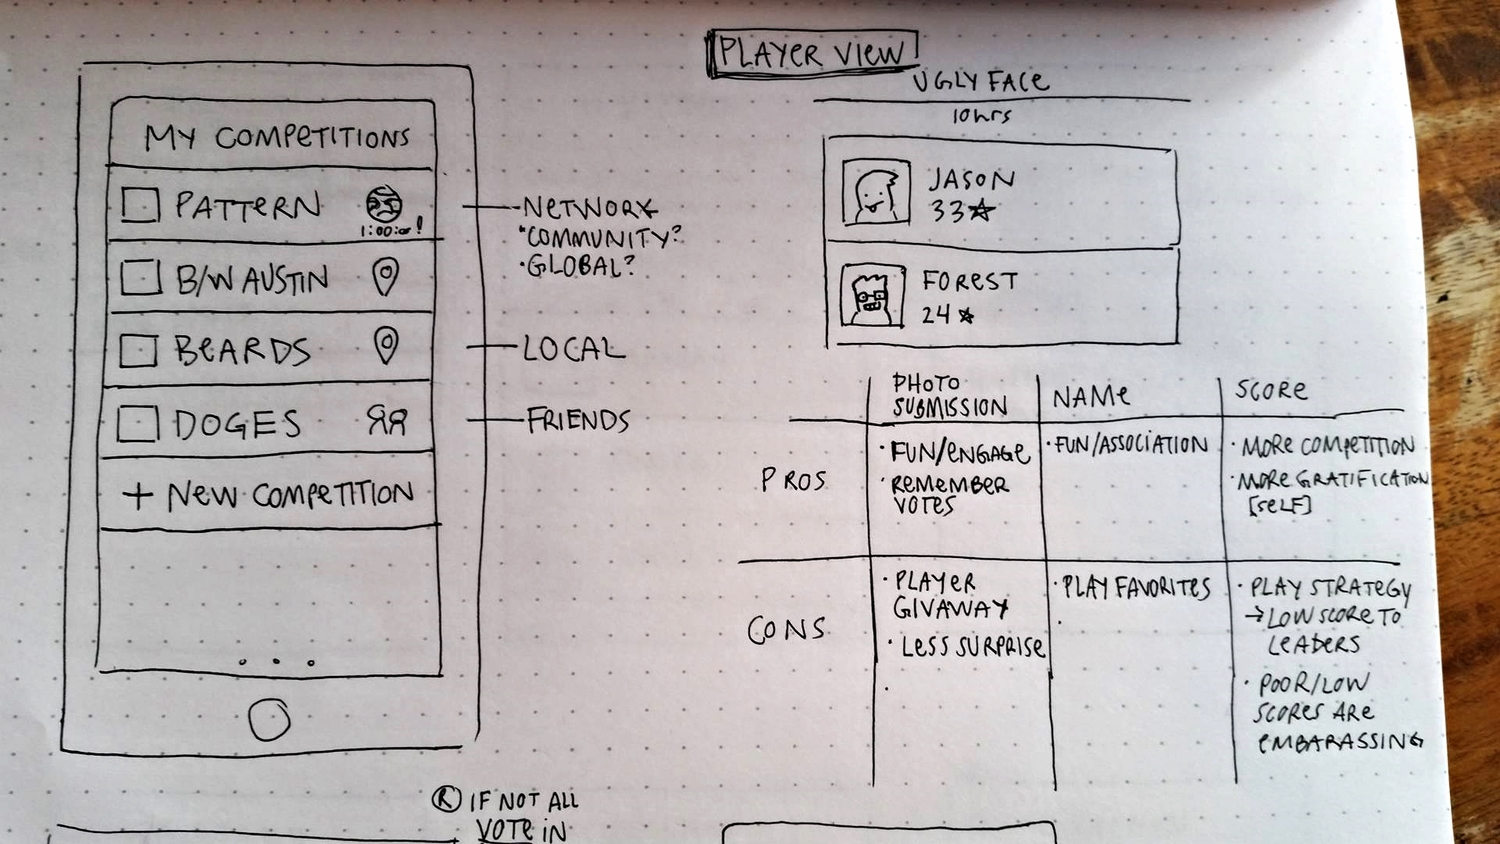 MY COMPETITIONS
PATTERN
1:00:00!
B/W AUSTIN
BEARDS
DOGES
+ NEW COMPETITION
NETWORK
COMMUNITY?
GLOBAL?
LOCAL
FRIENDS
PLAYER VIEW
UGLY FACE
10hrs
JASON
33
FOREST
24
PHOTO
SUBMISSION
NAME
SCORE
PROS
· FUN/ENGAGE
· REMEMBER
VOTES
· FUN/ASSOCIATION
· MORE COMPETITION
· MORE GRATIFICATION
[SELF]
CONS
· PLAYER
GIVAWAY
· LESS SURPRISE
· PLAY FAVORITES
· PLAY STRATEGY
→ LOW SCORE TO
LEADERS
· POOR/LOW
SCORES ARE
EMBARASSING
Ⓡ IF NOT ALL
VOTE IN